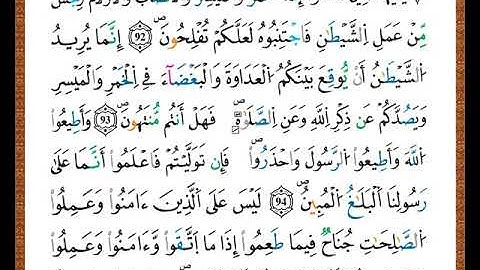 مِّنْ عَمَلِ اِ۬لشَّيْطَٰنِ فَاجْتَنِبُوهُ لَعَلَّكُمْ تُفْلِحُونَۖ 92 إِنَّمَا يُرِيدُ
اُ۬لشَّيْطَٰنُ أَنْ يُّوقِعَ بَيْنَكُمُ اُ۬لْعَدَاوَةَ وَالْبَغْضَآءَ فِے اِ۬لْخَمْرِ وَالْمَيْسِرِ
وَيَصُدَّكُمْ عَن ذِكْرِ اِ۬للَّهِ وَعَنِ اِ۬لصَّلَوٰةِۖ فَهَلْ أَنتُم مُّنتَهُونَۖ 93 وَأَطِيعُواْ
اُ۬للَّهَ وَأَطِيعُواْ اُ۬لرَّسُولَ وَاحْذَرُواْۖ فَإِن تَوَلَّيْتُمْ فَاعْلَمُواْ أَنَّمَا عَلَىٰ
رَسُولِنَا اَ۬لْبَلَٰغُ اُ۬لْمُبِينُۖ 94 لَيْسَ عَلَى اَ۬لذِينَ ءَامَنُواْ وَعَمِلُواْ
اُ۬لصَّٰلِحَٰتِ جُنَاحٞ فِيمَا طَعِمُواْ إِذَا مَا اَ۪تَّقَواْ وَّءَامَنُواْ وَعَمِلُواْ